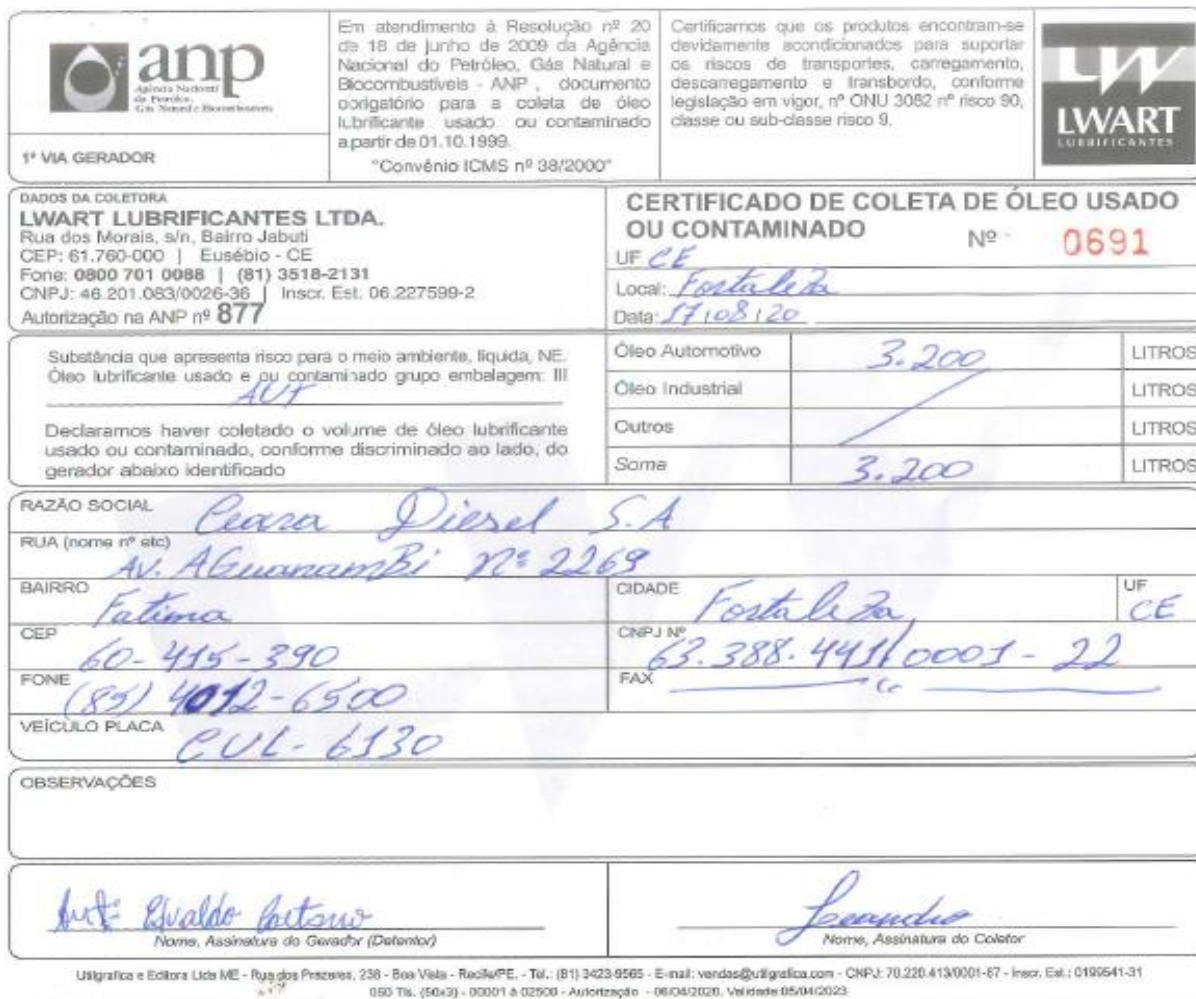 anp
Agência Nacional
do Petróleo,
Gás Natural e Biocombustíveis
1ª VIA GERADOR
Em atendimento à Resolução nº 20
de 18 de junho de 2009 da Agência
Nacional do Petróleo, Gás Natural e
Biocombustíveis - ANP , documento
obrigatório para a coleta de óleo
lubrificante usado ou contaminado
a partir de 01.10.1999.
"Convênio ICMS nº 38/2000"
Certificamos que os produtos encontram-se
devidamente acondicionados para suportar
os riscos de transportes, carregamento,
descarregamento e transbordo, conforme
legislação em vigor, nº ONU 3082 nº risco 90,
classe ou sub-classe risco 9.
LW
LWART
LUBRIFICANTES
DADOS DA COLETORA
LWART LUBRIFICANTES LTDA.
Rua dos Morais, s/n, Bairro Jabuti
CEP: 61.760-000 | Eusébio - CE
Fone: 0800 701 0088 | (81) 3518-2131
CNPJ: 46.201.083/0026-36 | Inscr. Est. 06.227599-2
Autorização na ANP nº 877
CERTIFICADO DE COLETA DE ÓLEO USADO
OU CONTAMINADO Nº 0691
UF CE
Local: Fortaleza
Data: 17/08/20
Substância que apresenta risco para o meio ambiente, líquida, NE.
Óleo lubrificante usado e ou contaminado grupo embalagem: III
AUT
Declaramos haver coletado o volume de óleo lubrificante
usado ou contaminado, conforme discriminado ao lado, do
gerador abaixo identificado
Óleo Automotivo 3.200 LITROS
Óleo Industrial LITROS
Outros LITROS
Soma 3.200 LITROS
RAZÃO SOCIAL Ceara Diesel S.A
RUA (nome nº etc) AV. AGuanamBi Nº 2269
BAIRRO Fatima
CIDADE Fortaleza
UF CE
CEP 60-415-390
CNPJ Nº 63.388.441/0001-22
FONE (85) 4012-6500
FAX
VEÍCULO PLACA CUL-6130
OBSERVAÇÕES
Antº Edvaldo Caetano
Nome, Assinatura do Gerador (Detentor)
Leandro
Nome, Assinatura do Coletor
Utilgrafica e Editora Ltda ME - Rua dos Prazeres, 238 - Boa Vista - Recife/PE. - Tel.: (81) 3423-9565 - E-mail: vendas@utilgrafica.com - CNPJ: 70.220.413/0001-67 - Inscr. Est.: 0199541-31
050 Tls. (50x3) - 00001 à 02500 - Autorização - 06/04/2020. Validade:05/04/2023